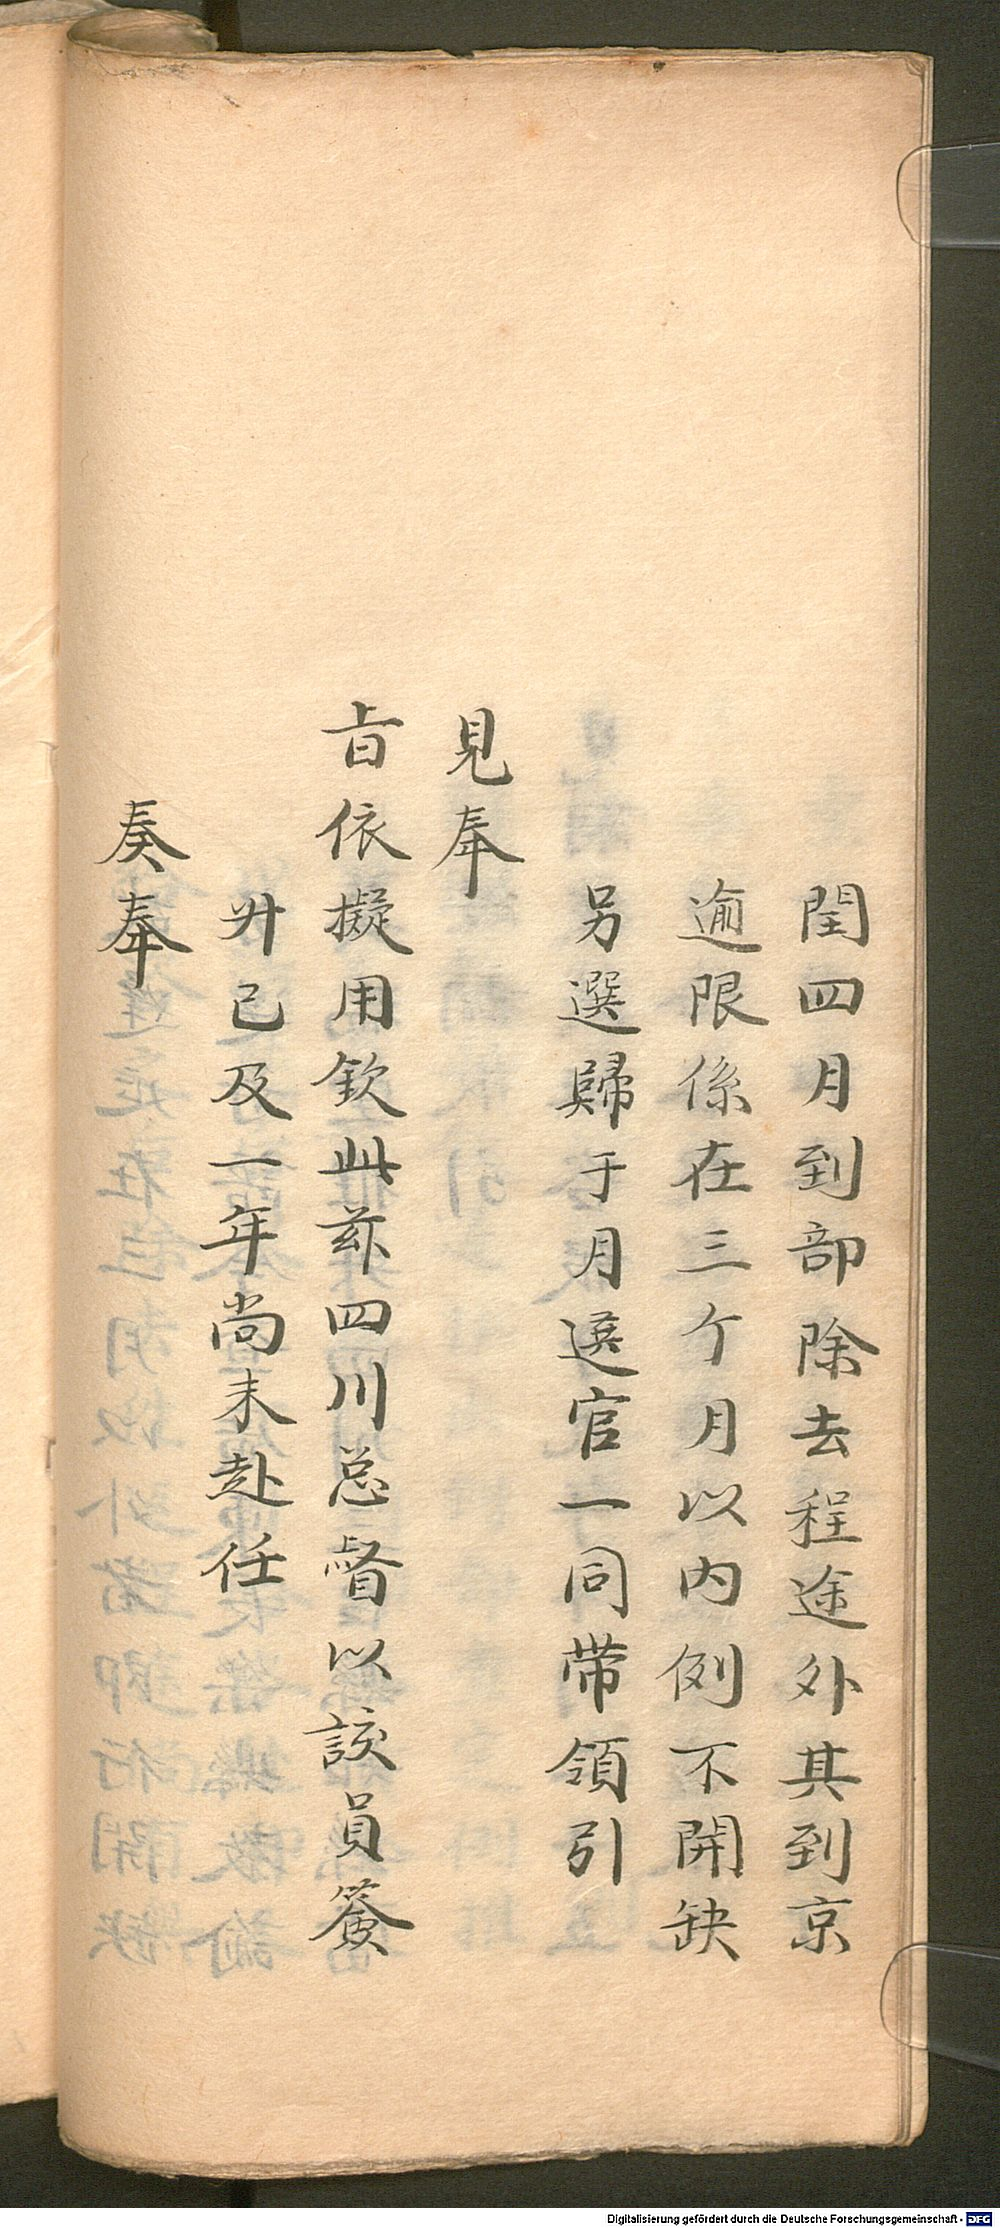 閏四月到部除去程途外其到京
逾限係在三个月以内例不開缺
另選歸于月選官一同帶領引
見奉
旨依擬用欽此茲四川总督以該員簽
升已及一年尚未赴任
奏奉
Digitalisierung gefördert durch die Deutsche Forschungsgemeinschaft - DFG